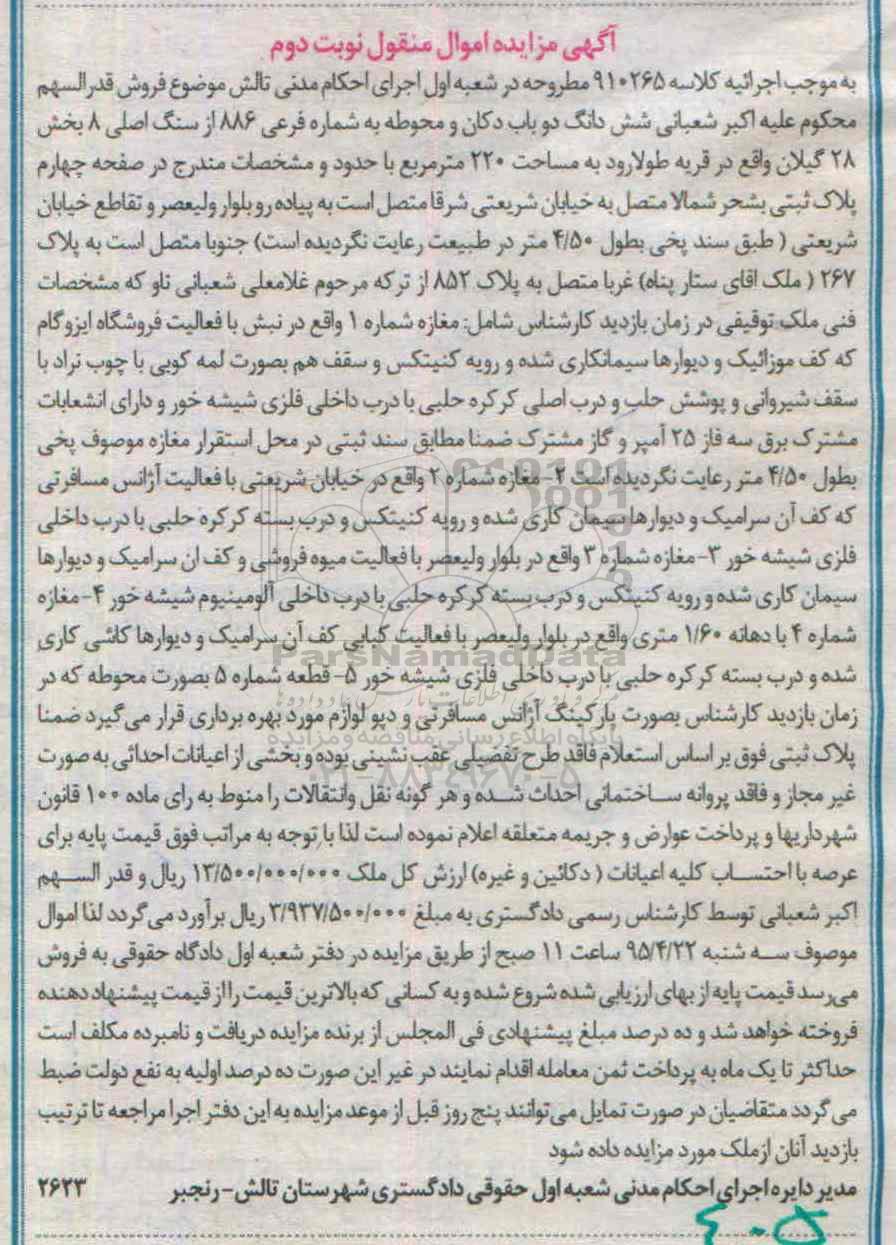 آگهی مزایده اموال منقول نوبت دوم
به موجب اجرائیه کلاسه ۹۱۰۲۶۵ مطروحه در شعبه اول اجرای احکام مدنی تالش موضوع فروش قدرالسهم
محکوم علیه اکبر شعبانی شش دانگ دو باب دکان و محوطه به شماره فرعی ۸۸۶ از سنگ اصلی ۸ بخش
۲۸ گیلان واقع در قریه طولارود به مساحت ۲۲۰ مترمربع با حدود و مشخصات مندرج در صفحه چهارم
پلاک ثبتی بشحر شمالا متصل به خیابان شریعتی شرقا متصل است به پیاده رو بلوار ولیعصر و تقاطع خیابان
شریعتی ( طبق سند پخی بطول ۴/۵۰ متر در طبیعت رعایت نگردیده است) جنوبا متصل است به پلاک
۲۶۷ ( ملک اقای ستار پناه) غربا متصل به پلاک ۸۵۲ از ترکه مرحوم غلامعلی شعبانی ناو که مشخصات
فنی ملک توقیفی در زمان بازدید کارشناس شامل: مغازه شماره ۱ واقع در نبش با فعالیت فروشگاه ایزوگام
که کف موزائیک و دیوارها سیمانکاری شده و رویه کنیتکس و سقف هم بصورت لمه کوبی با چوب نراد با
سقف شیروانی و پوشش حلب و درب اصلی کرکره حلبی با درب داخلی فلزی شیشه خور و دارای انشعابات
مشترک برق سه فاز ۲۵ آمپر و گاز مشترک ضمنا مطابق سند ثبتی در محل استقرار مغازه موصوف پخی
بطول ۴/۵۰ متر رعایت نگردیده است ۲- مغازه شماره ۲ واقع در خیابان شریعتی با فعالیت آژانس مسافرتی
که کف آن سرامیک و دیوارها سیمان کاری شده و رویه کنیتکس و درب بسته کرکره حلبی با درب داخلی
فلزی شیشه خور ۳- مغازه شماره ۳ واقع در بلوار ولیعصر با فعالیت میوه فروشی و کف ان سرامیک و دیوارها
سیمان کاری شده و رویه کنیتکس و درب بسته کرکره حلبی با درب داخلی آلومینیوم شیشه خور ۴- مغازه
شماره ۴ با دهانه ۱/۶۰ متری واقع در بلوار ولیعصر با فعالیت کبابی کف آن سرامیک و دیوارها کاشی کاری
ParsNamadData
شده و درب بسته کرکره حلبی با درب داخلی فلزی شیشه خور ۵- قطعه شماره ۵ بصورت محوطه که در
زمان بازدید کارشناس بصورت پارکینگ آژانس مسافرتی و دپو لوازم مورد بهره برداری قرار می گیرد ضمنا
پایگاه اطلاع رسانی مناقصه و مزایده
پلاک ثبتی فوق بر اساس استعلام فاقد طرح تفضیلی عقب نشینی بوده و بخشی از اعیانات احداثی به صورت
۰۲۱-۸۸۳۴۹۶۷۰-۵
غیر مجاز و فاقد پروانه ساختمانی احداث شده و هر گونه نقل وانتقالات را منوط به رای ماده ۱۰۰ قانون
شهرداریها و پرداخت عوارض و جریمه متعلقه اعلام نموده است لذا با توجه به مراتب فوق قیمت پایه برای
عرصه با احتساب کلیه اعیانات ( دکائین و غیره) ارزش کل ملک ۱۳/۵۰۰/۰۰۰/۰۰۰ ریال و قدر السهم
اکبر شعبانی توسط کارشناس رسمی دادگستری به مبلغ ۳/۹۳۷/۵۰۰/۰۰۰ ریال برآورد می گردد لذا اموال
موصوف سه شنبه ۹۵/۴/۲۲ ساعت ۱۱ صبح از طریق مزایده در دفتر شعبه اول دادگاه حقوقی به فروش
میرسد قیمت پایه از بهای ارزیابی شده شروع شده و به کسانی که بالاترین قیمت را از قیمت پیشنهاد دهنده
فروخته خواهد شد و ده درصد مبلغ پیشنهادی فی المجلس از برنده مزایده دریافت و نامبرده مکلف است
حداکثر تا یک ماه به پرداخت ثمن معامله اقدام نمایند در غیر این صورت ده درصد اولیه به نفع دولت ضبط
می گردد متقاضیان در صورت تمایل می توانند پنج روز قبل از موعد مزایده به این دفتر اجرا مراجعه تا ترتیب
بازدید آنان از ملک مورد مزایده داده شود
مدیر دایره اجرای احکام مدنی شعبه اول حقوقی دادگستری شهرستان تالش- رنجبر ۲۶۲۳